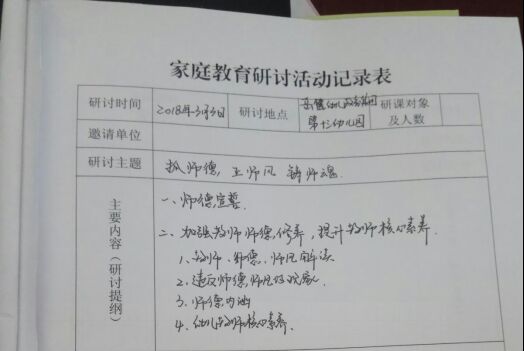 家庭教育研讨活动记录表
研讨时间 2018年3月3日 研讨地点 幼儿教育集团 研课对象
第十幼儿园 及人数
邀请单位
研讨主题 抓师德,正师风 铸师魂.
主要内容(研讨提纲)
一、师德宣誓
二、加强教师师德修养,提升教师核心素养.
1、教师、师德、师风解读
2、违反师德师风
3、师德内涵
4、幼儿教师核心素养.